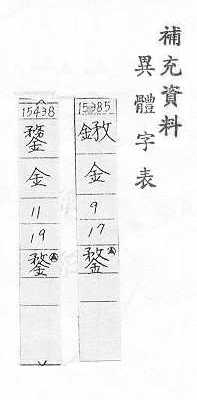 補充資料
異體字表
15385
金
9
17
鍪
15438
金
11
19
鍪